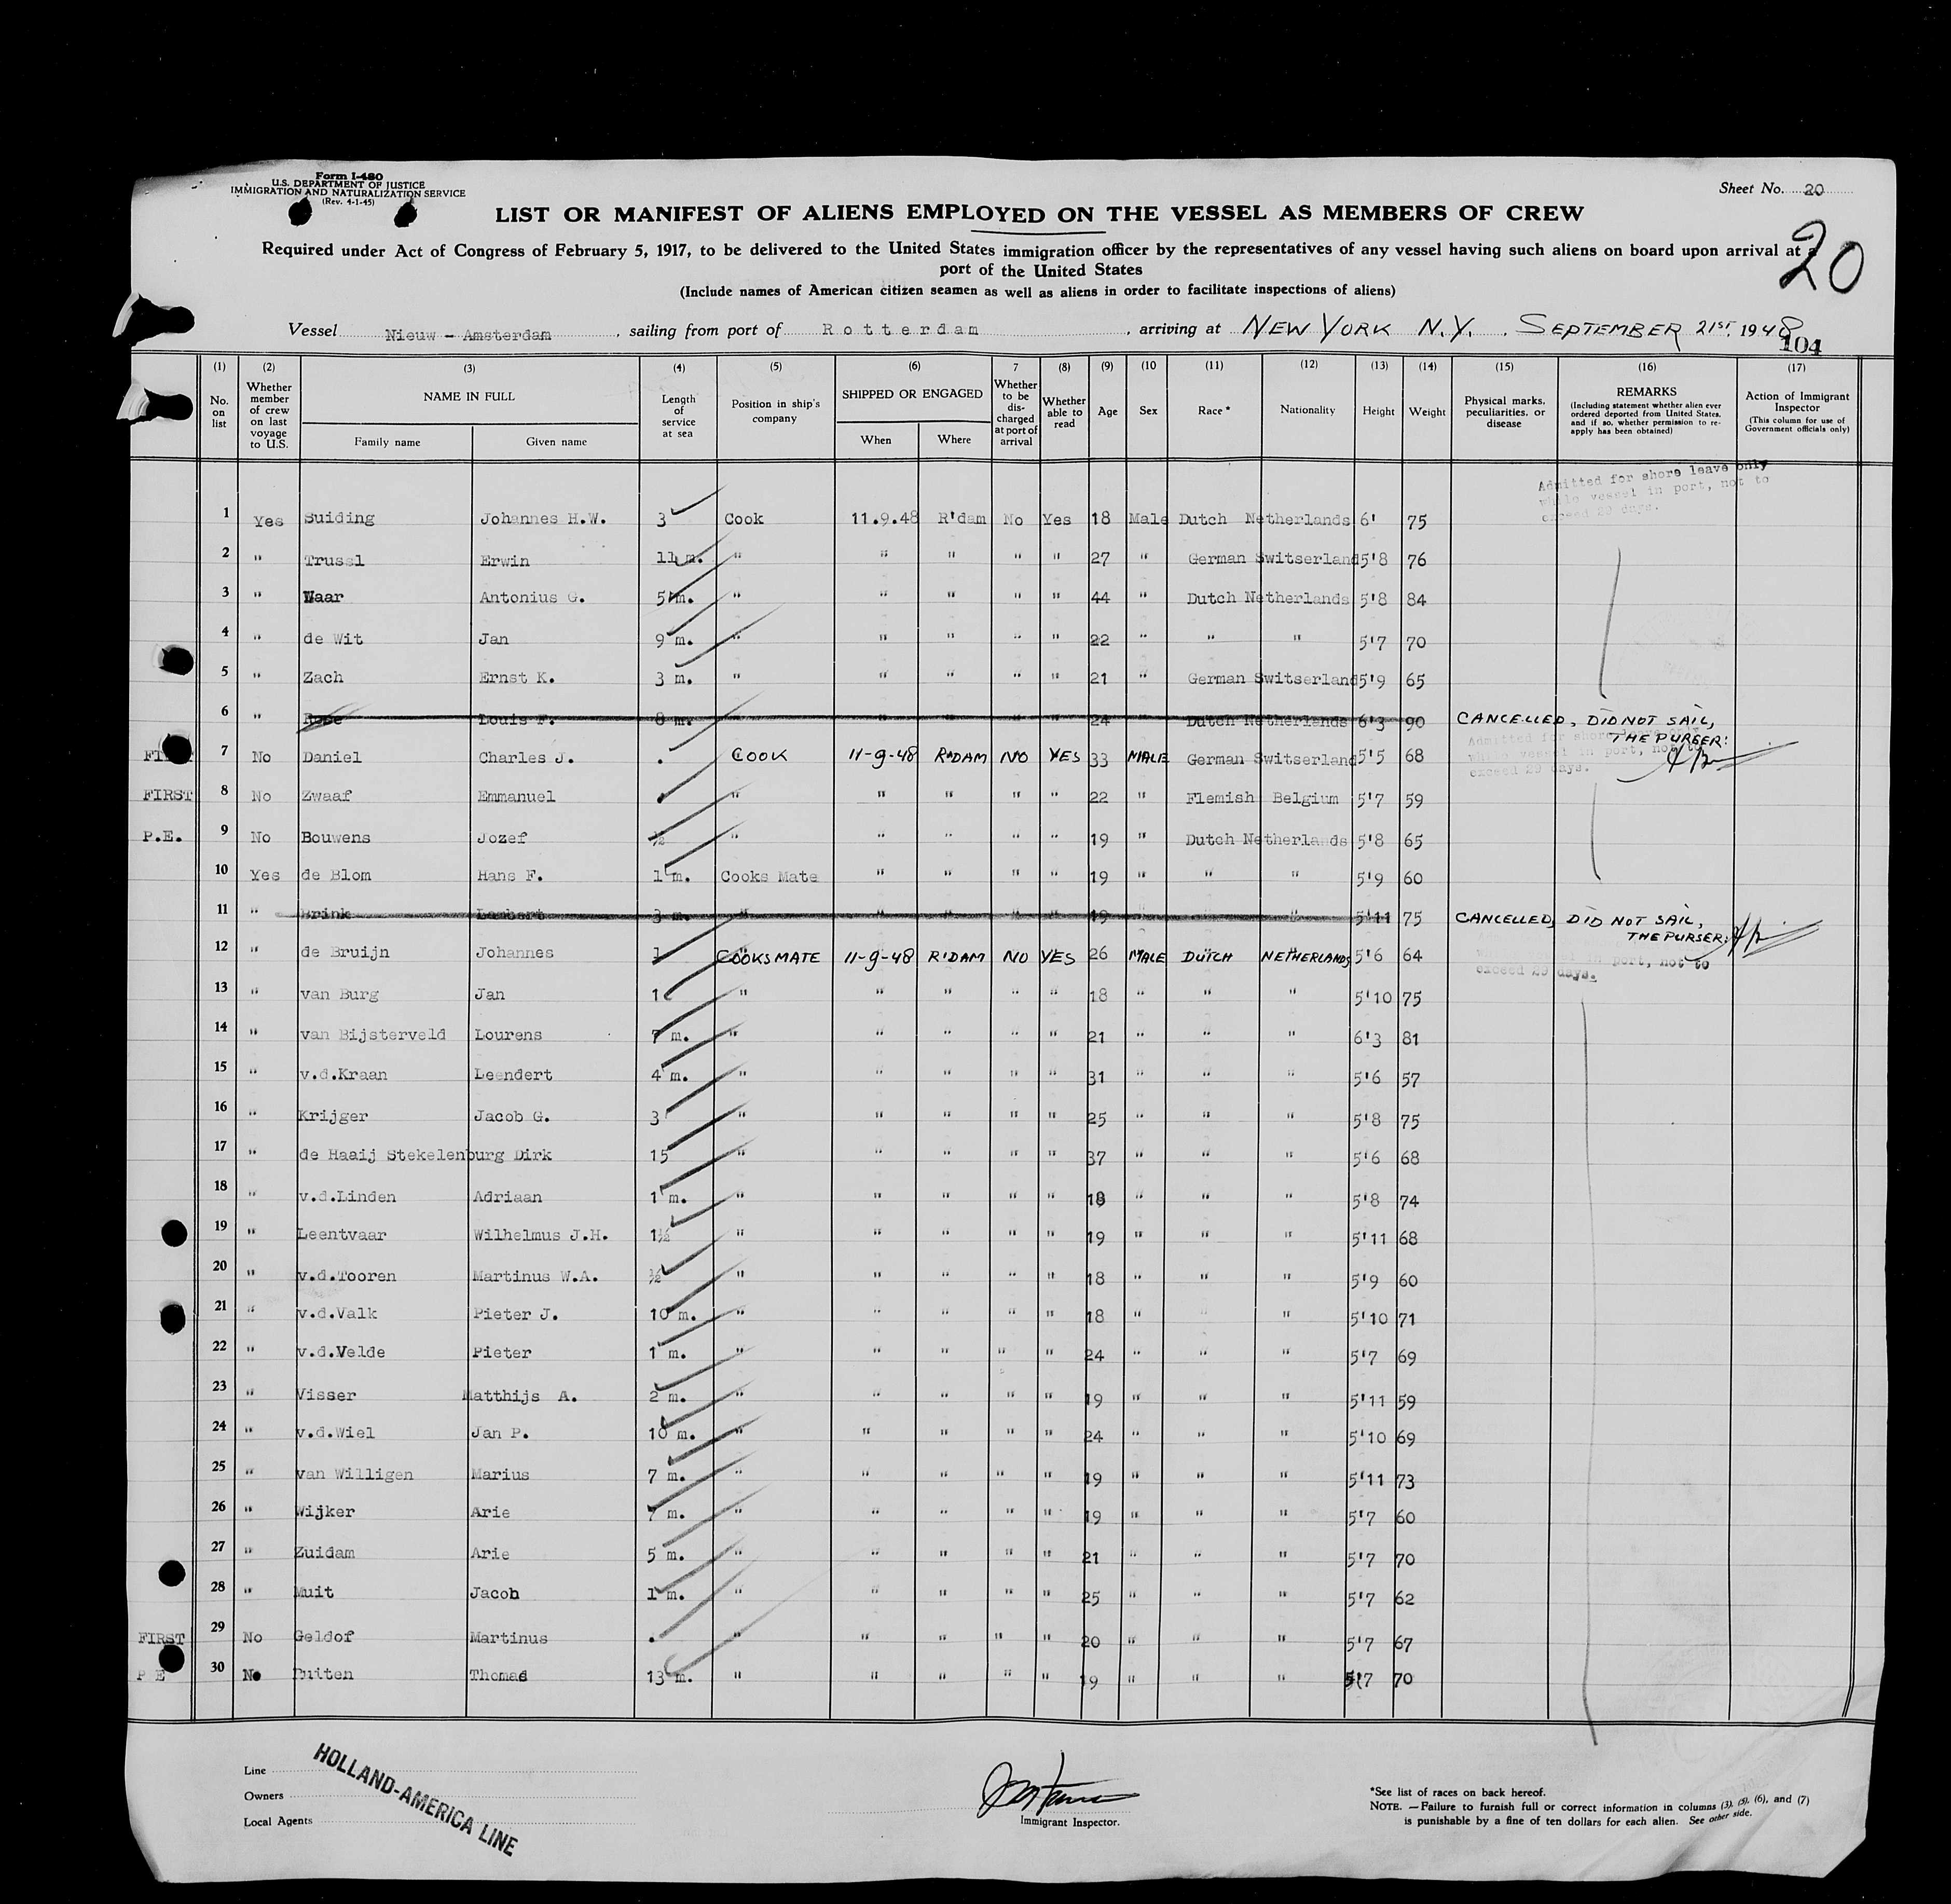 Form I-480
U.S. DEPARTMENT OF JUSTICE
IMMIGRATION AND NATURALIZATION SERVICE
(Rev. 4-1-45)
Sheet No. 20
LIST OR MANIFEST OF ALIENS EMPLOYED ON THE VESSEL AS MEMBERS OF CREW
20
Required under Act of Congress of February 5, 1917, to be delivered to the United States immigration officer by the representatives of any vessel having such aliens on board upon arrival at a
port of the United States
(Include names of American citizen seamen as well as aliens in order to facilitate inspections of aliens)
Vessel Nieuw - Amsterdam , sailing from port of Rotterdam , arriving at NEW YORK N.Y. , SEPTEMBER 21ST, 1948
104
(1) (2) (3) (4) (5) (6) 7 (8) (9) (10 (11) (12) (13) (14) (15) (16) (17)
No. on list Whether member of crew on last voyage to U.S. NAME IN FULL Family name Given name Length of service at sea Position in ship's company SHIPPED OR ENGAGED When Where Whether to be discharged at port of arrival Whether able to read Age Sex Race * Nationality Height Weight Physical marks, peculiarities, or disease REMARKS (Including statement whether alien ever ordered deported from United States, and if so, whether permission to re-apply has been obtained) Action of Immigrant Inspector (This column for use of Government officials only)
Admitted for shore leave only
while vessel in port, not to
exceed 29 days.
1 Yes Suiding Johannes H.W. 3 Cook 11.9.48 R'dam No Yes 18 Male Dutch Netherlands 6' 75
2 " Trussl Erwin 11 m. " " " " " 27 " German Switserland 5'8 76
3 " Waar Antonius G. 5 m. " " " " " 44 " Dutch Netherlands 5'8 84
4 " de Wit Jan 9 m. " " " " " 22 " " " 5'7 70
5 " Zach Ernst K. 3 m. " " " " " 21 " German Switserland 5'9 65
6 " Louis F. 8 m. " " " " 24 Dutch Netherlands 6'3 90 CANCELLED, DID NOT SAIL,
THE PURSER:
Admitted for shore leave only
while vessel in port, not to
exceed 29 days.
7 No Daniel Charles J. . COOK 11-9-48 R'DAM NO YES 33 MALE German Switserland 5'5 68
FIRST 8 No Zwaaf Emmanuel . " " " " " 22 " Flemish Belgium 5'7 59
P.E. 9 No Bouwens Jozef ½ " " " " " 19 " Dutch Netherlands 5'8 65
10 Yes de Blom Hans F. 1 m. Cooks Mate " " " " 19 " " " 5'9 60
11 " Brink Lambert 3 m. " " " " " 19 " " 5'11 75 CANCELLED, DID NOT SAIL,
THE PURSER:
12 " de Bruijn Johannes 1 COOKSMATE 11-9-48 R'DAM NO YES 26 MALE DUTCH NETHERLANDS 5'6 64
in port, not to
exceed 29 days.
13 " van Burg Jan 1 " " " " " 18 " " " 5'10 75
14 " van Bijsterveld Lourens 7 m. " " " " " 21 " " " 6'3 81
15 " v.d.Kraan Leendert 4 m. " " " " " 31 " " " 5'6 57
16 " Krijger Jacob G. 3 " " " " " 25 " " " 5'8 75
17 " de Haaij Stekelenburg Dirk 15 " " " " " 37 " " " 5'6 68
18 " v.d.Linden Adriaan 1 m. " " " " " 18 " " " 5'8 74
19 " Leentvaar Wilhelmus J.H. 1½ " " " " " 19 " " " 5'11 68
20 " v.d.Tooren Martinus W.A. ½ " " " " " 18 " " " 5'9 60
21 " v.d.Valk Pieter J. 10 m. " " " " " 18 " " " 5'10 71
22 " v.d.Velde Pieter 1 m. " " " " " 24 " " " 5'7 69
23 " Visser Matthijs A. 2 m. " " " " " 19 " " " 5'11 59
24 " v.d.Wiel Jan P. 10 m. " " " " " 24 " " " 5'10 69
25 " van Willigen Marius 7 m. " " " " " 19 " " " 5'11 73
26 " Wijker Arie 7 m. " " " " " 19 " " " 5'7 60
27 " Zuidam Arie 5 m. " " " " " 21 " " " 5'7 70
28 " Muit Jacob 1 m. " " " " " 25 " " " 5'7 62
FIRST 29 No Geldof Martinus . " " " " " 20 " " " 5'7 67
P E 30 No Duiten Thomas 13 m. " " " " " 19 " " " 5'7 70
Line
Owners
Local Agents
HOLLAND-AMERICA LINE
Immigrant Inspector.
*See list of races on back hereof.
NOTE. —Failure to furnish full or correct information in columns (3), (5), (6), and (7)
is punishable by a fine of ten dollars for each alien. See other side.